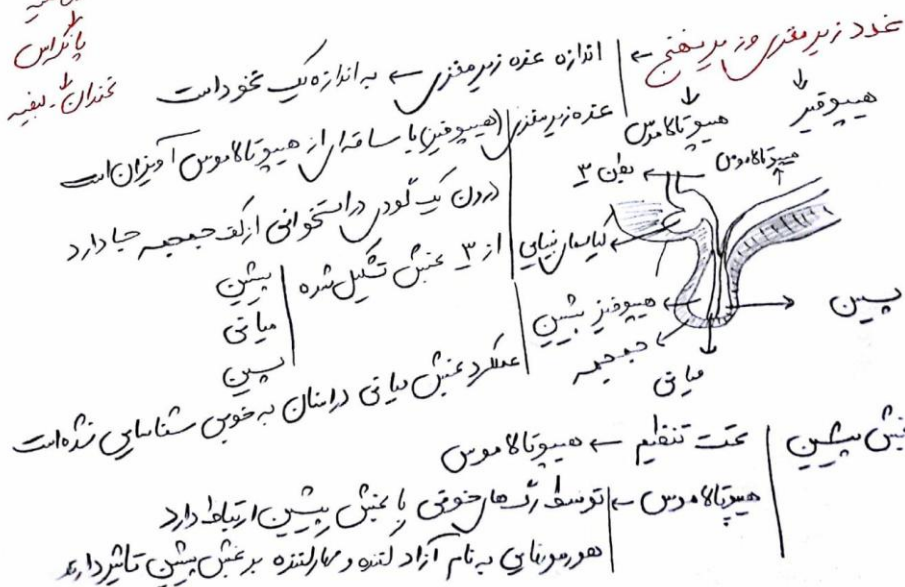 پانکراس
تخمدان - بیضه
غدد زیر مغزی و زیر نهنج ← اندازه غده زیر مغزی ← به اندازه یک نخود است
هیپوفیز
هیپوتالاموس
غده زیر مغزی (هیپوفیز) با ساقه ای از هیپوتالاموس آویزان است
درون یک گودی در استخوانی از کف جمجمه جا دارد
از ۳ بخش تشکیل شده
پیشین
میانی
پسین
عملکرد بخش میانی در انسان به خوبی شناسایی نشده است
هیپوتالاموس
بطن ۳
کیاسمای بینایی
هیپوفیز پیشین
جمجمه
میانی
پسین
بخش پیشین
تحت تنظیم ← هیپوتالاموس
هیپوتالاموس ← توسط رگ های خونی با بخش پیشین ارتباط دارد
هورمونهایی به نام آزاد کننده و مهار کننده بر بخش پیشین تاثیر دارند